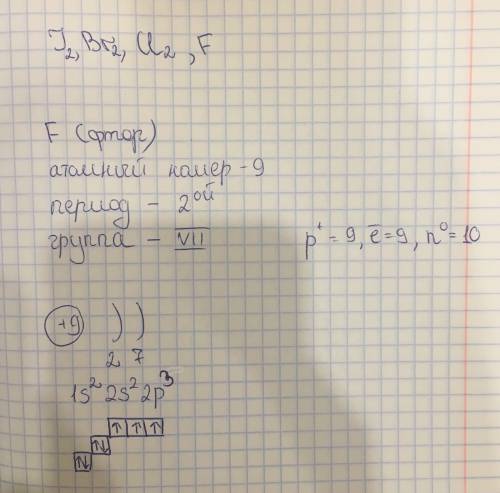 J₂, Br₂, Cl₂, F
F (фтор)
атомный номер - 9
период - 2ой
группа - VII
p⁺ = 9, e̅ = 9, n⁰ = 10
+9 ) )
2 7
1s² 2s² 2p³
↑↓ ↑↓ ↑ ↑ ↑